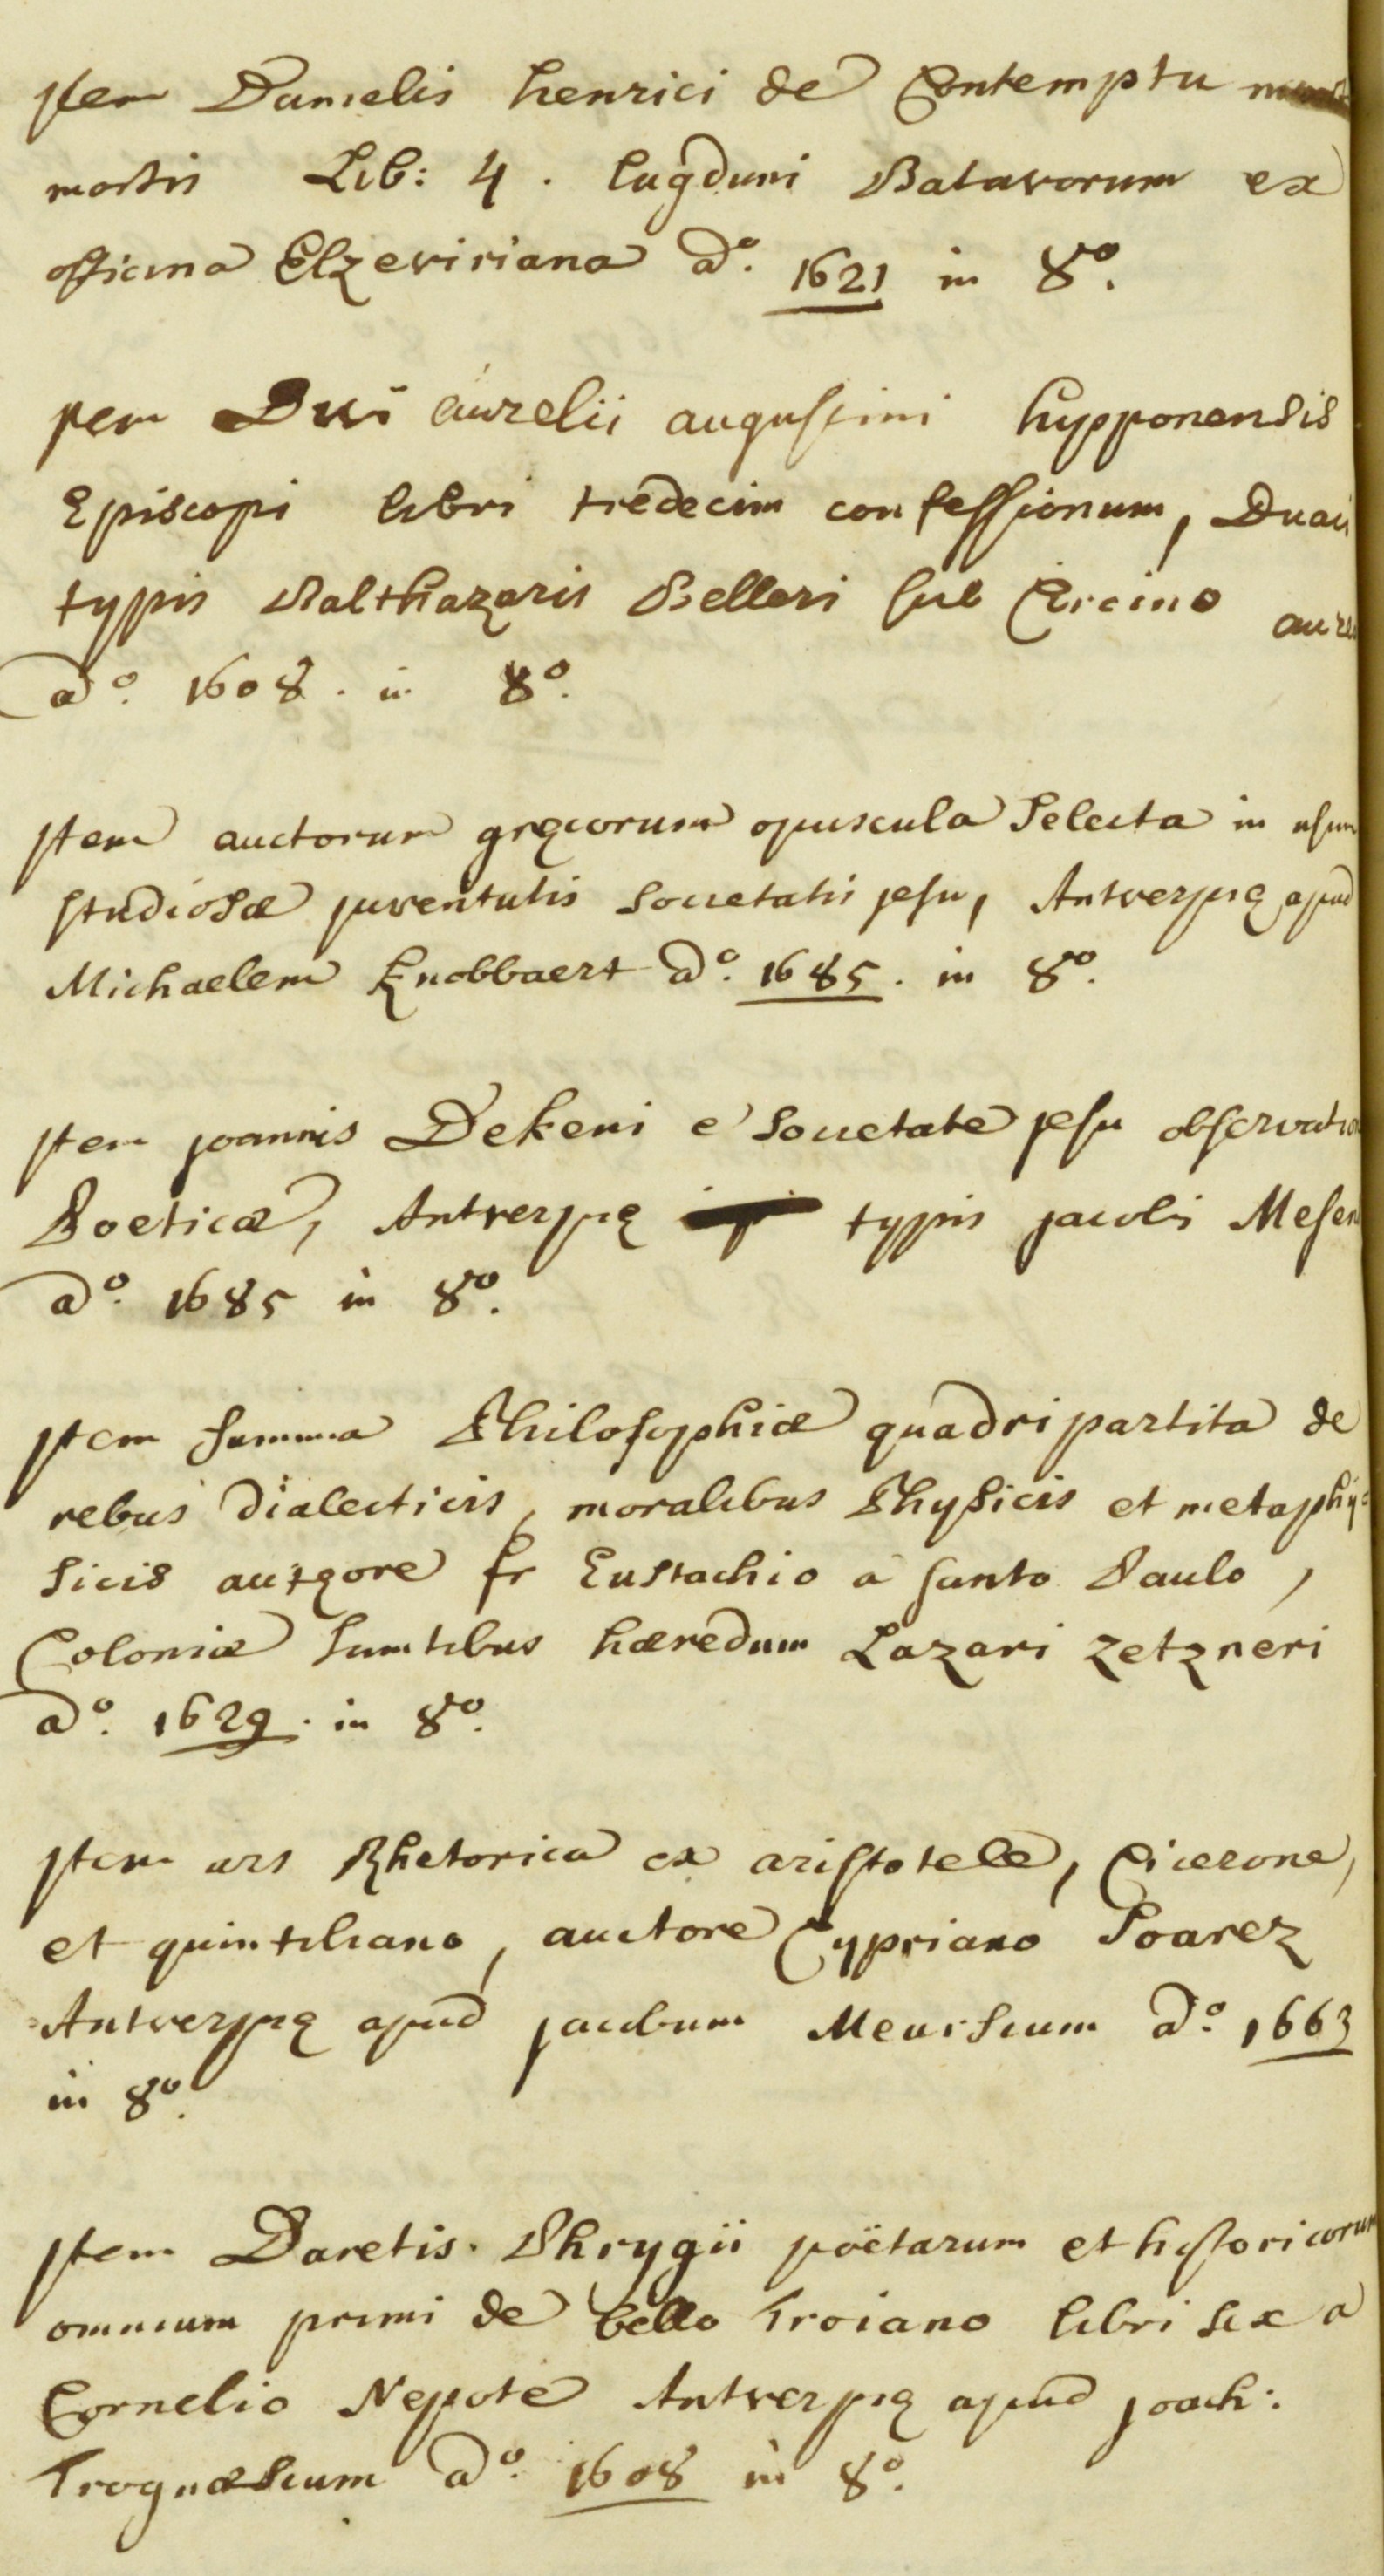 Item Danielis henrici de Contemptu
mortis Lib: 4. lugduni Batavorum ex
officina Elzeviriana a°. 1621 in 8°.
Item Divi aurelii augustini hypponensis
Episcopi libri tredecim confessionum, Duaci
typis Balthazaris Belleri sub Circino aureo
a°. 1608. in 8°.
Item auctorum gręcorum opuscula Selecta in usum
studiosæ juventutis Societatis jesu, Antverpię apud
Michaelem Knobbaert a°. 1685. in 8°.
Item joannis Dekeni è Societate jesu observation
Poeticæ, Antverpię typis jacobi Mesen
a°. 1685 in 8°.
Item summa Philosophiæ quadripartita de
rebus dialecticis, moralibus Physicis et metaphy=
sicis autgore fr Eustachio à santo Paulo,
Coloniæ sumtibus hæredum Lazari zetzneri
a°. 1629. in 8°.
Item ars Rhetorica ex aristotele, Cicerone,
et quintiliano, auctore Cypriano Soarez
Antverpię apud jacobum Meursium a°. 1663
in 8°.
Item Daretis Phrygii poëtarum et historicorum
omnium primi de bello Troiano libri sex a
Cornelio Nepote Antverpię apud joach:
Trognæsium a°. 1608 in 8°.